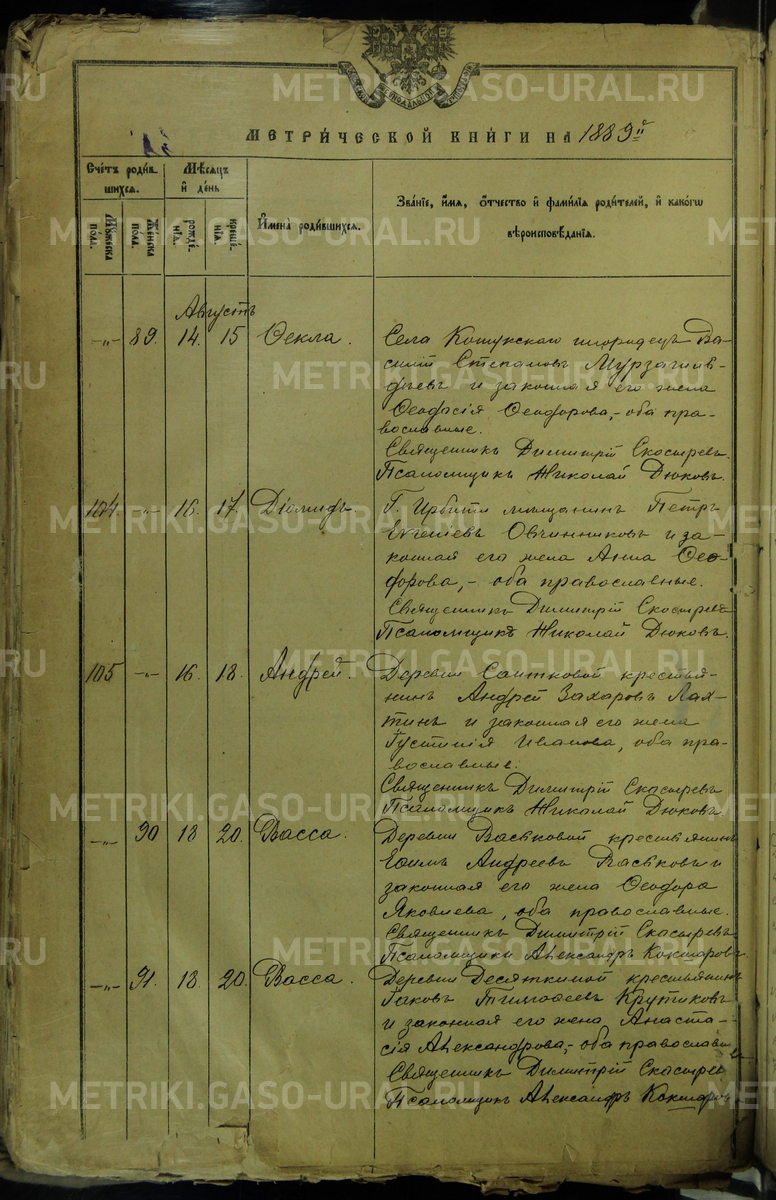 МЕТРИ́ЧЕСКОЙ КНИ́ГИ НА 1889 й
Сче́тъ роди́в
шихся.
Мѣ́сяцъ
и҆ де́нь
И҆мена̀ роди́вшихся.
Зва́нїе, и҆́мѧ, ѻ҆́тчество и҆ фами́лїѧ роди́телей, и҆ како́гѡ
вѣроисповѣ́данїѧ.
Мꙋ́жеска
по́ла.
Же́нска
по́ла.
рожде́
нїѧ.
креще́
нїѧ.
Августъ
—„— 89. 14. 15 Ѳекла.
Села Кошукскаго инородецъ Ва-
силій Степановъ
и законная его жена
Ѳеодосія Ѳеодорова,- оба пра-
вославные.
Священникъ Димитрій Скосыревъ.
Псаломщикъ Николай Дюковъ.
104. —„— 16. 17. Діомидъ.
Г. Ирбити мѣщанинъ Петръ
Евгеніевъ Овчинниковъ и за-
конная его жена Анна Ѳео-
дорова,- оба православные.
Священникъ Димитрій Скосыревъ
Псаломщикъ Николай Дюковъ.
105 —„— 16. 18. Андрей.
Деревни Саитковой крестья-
нинъ Андрей Захаровъ Лах-
тинъ и законная его жена
Іустинія Иванова, оба пра-
вославные.
Священникъ Димитрій Скосыревъ
Псаломщикъ Николай Дюковъ
—„— 90 18 20. Васса.
Деревни Васьковой крестьянинъ
Ефимъ Андреевъ Васьковъ и
законная его жена Ѳеодора
Яковлева, оба православные.
Священникъ Димитрій Скосыревъ
Псаломщикъ Александръ Кокшаровъ
—„— 91. 18. 20. Васса.
Деревни Десяткиной крестьянинъ
Іаковъ Тимоѳеевъ Крутиковъ
и законная его жена Анаста-
сія Александрова,- оба православные
Священникъ Димитрій Скосырев
Псаломщикъ Александръ Кокшаров
METRIKI.GASO-URAL.RU